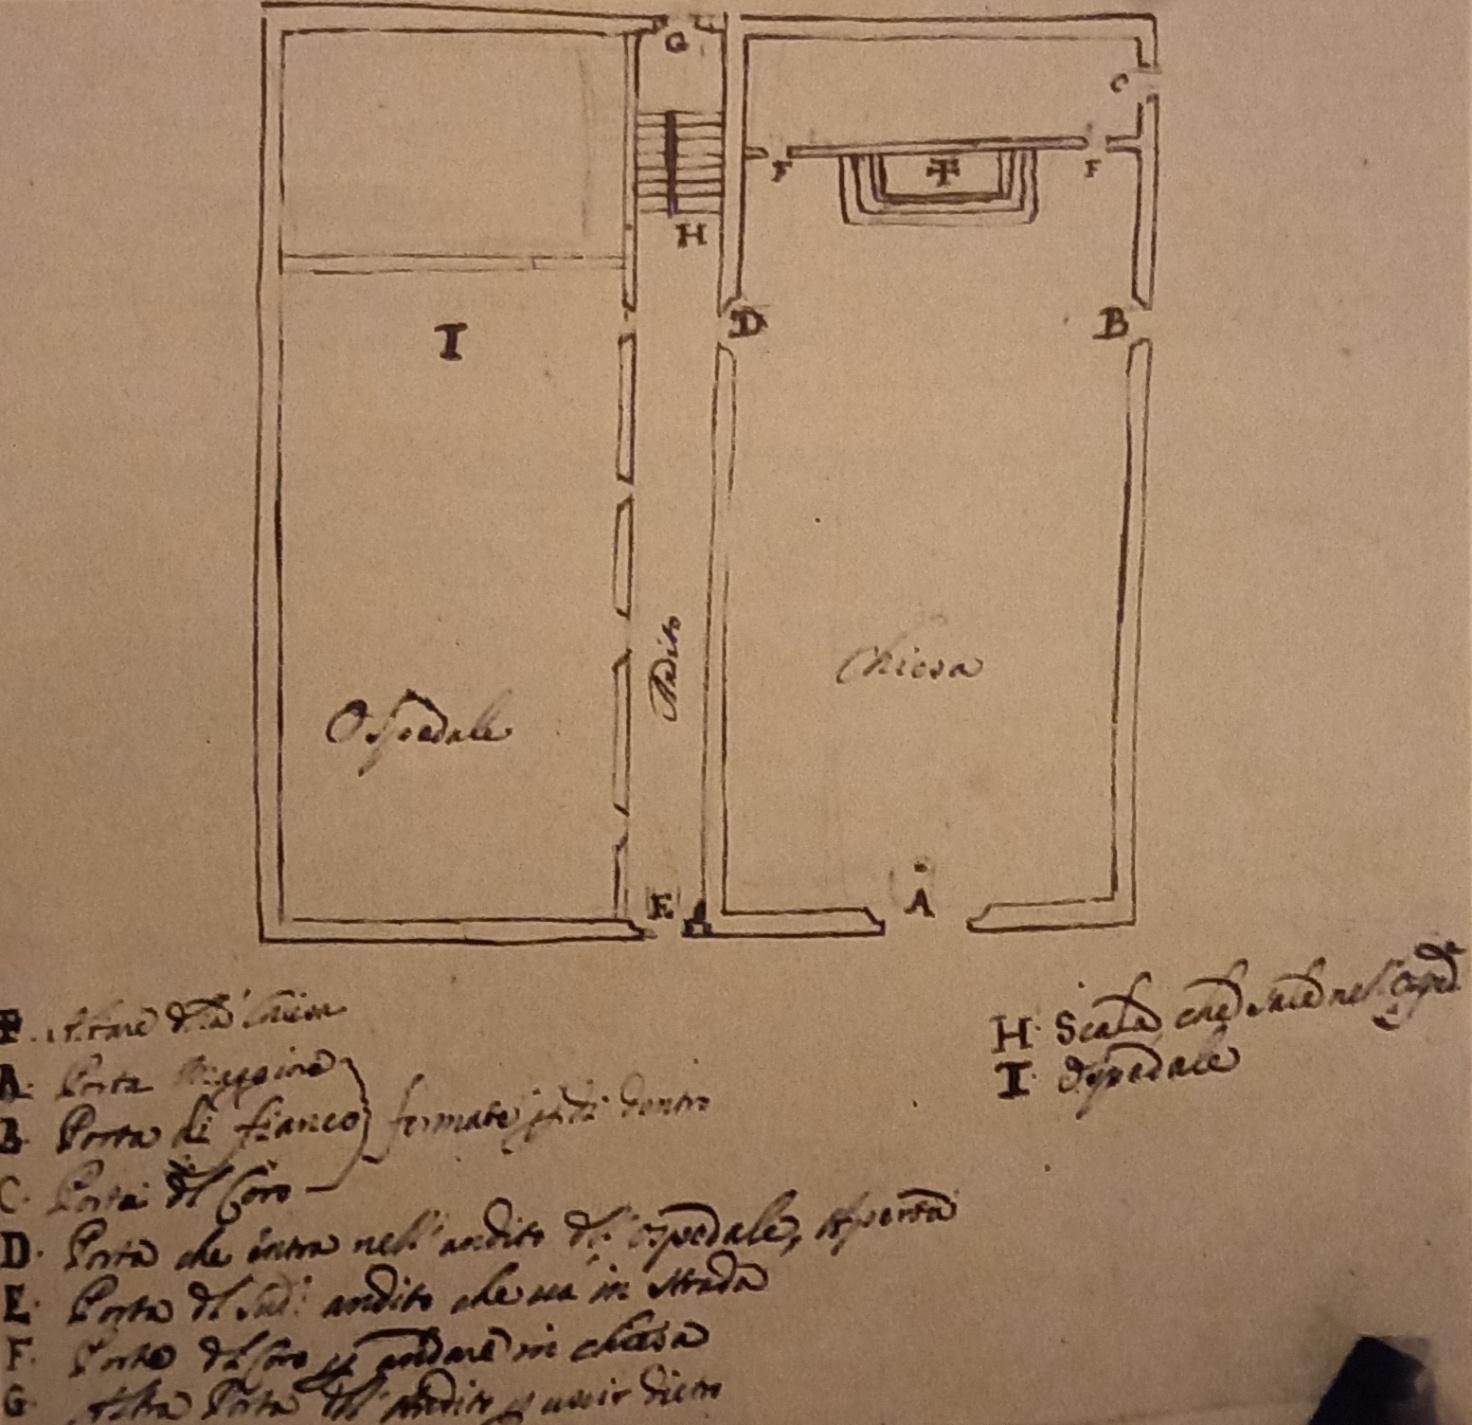 G
C
F ✝ F
H
D B
I
Andito
Chiesa
Ospedale
E A
✝. Altare dla Chiesa
A. Porta Maggiore
B. Porta di fianco } fermate p di dentro
C. Porta dl Coro
D. Porta che entra nell'andito dl' ospedale, aperta
E. Porta dl sud: andito che va in strada
F. Porte dl Coro p andare in chiesa
G. Altra Porta dl' Andito p uscir dietro
H. Scala che sale nell'
I. Ospedale